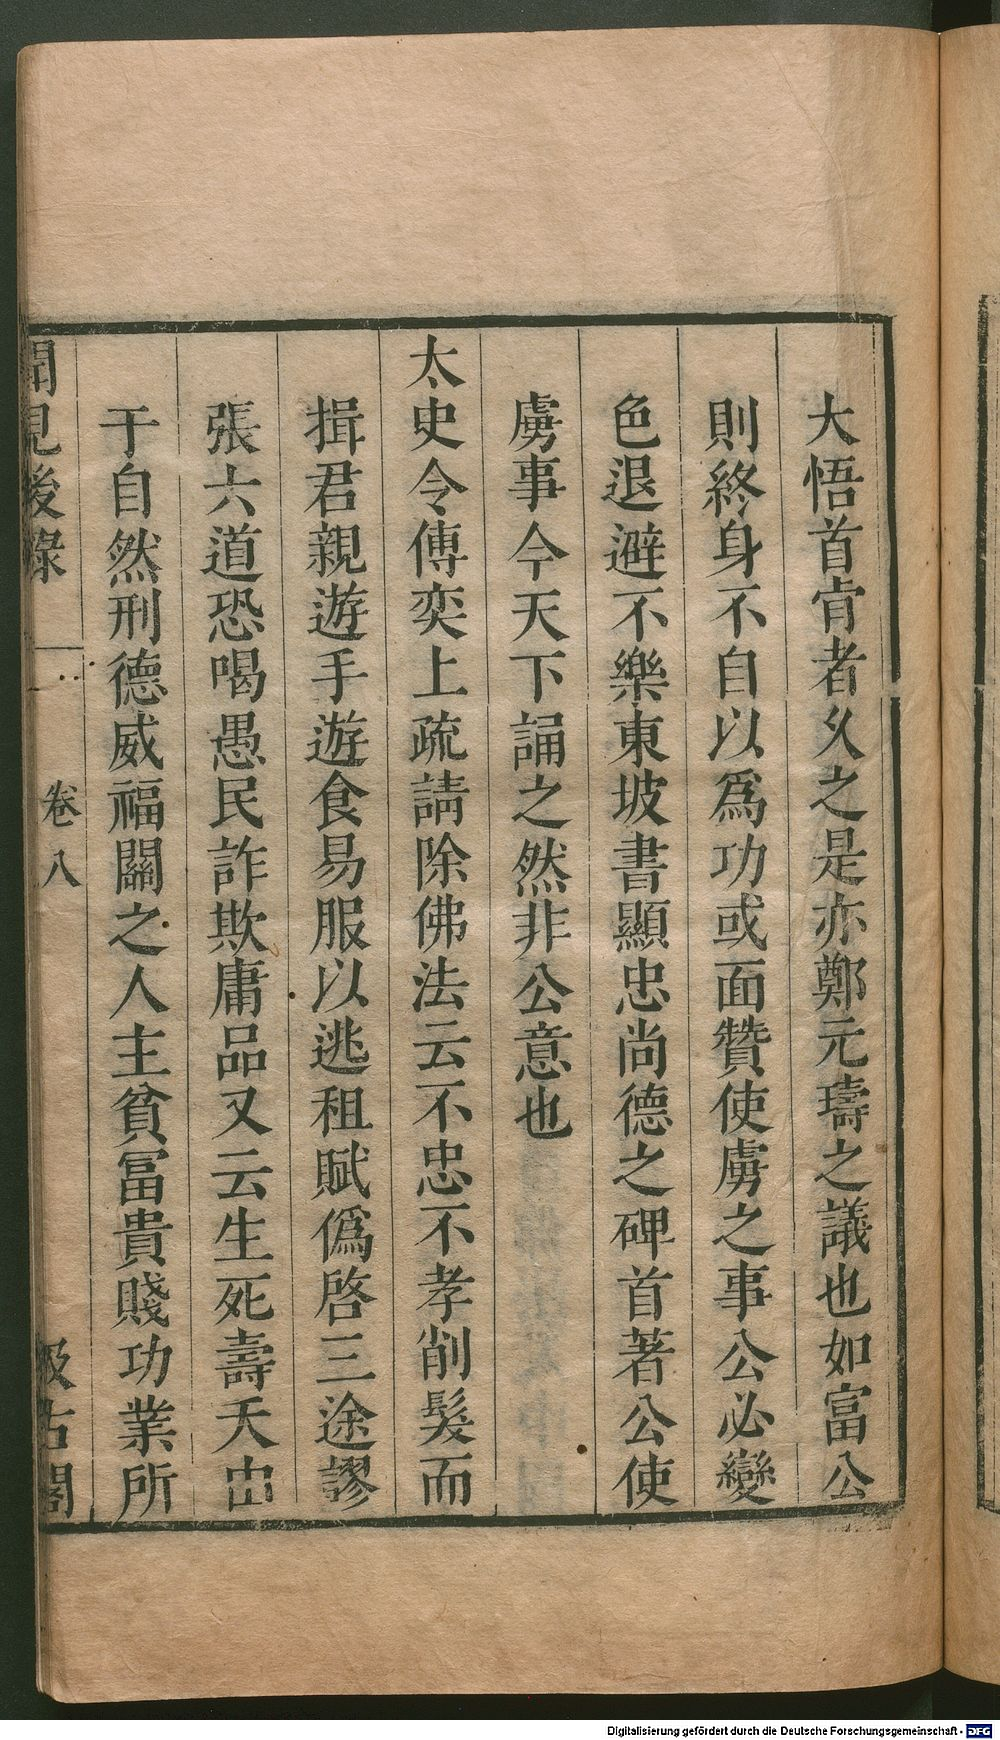 大悟首肯者久之是亦鄭元璹之議也如富公
則終身不自以爲功或面贊使虜之事公必變
色退避不樂東坡書顯忠尚德之碑首著公使
虜事今天下誦之然非公意也
太史令傅奕上疏請除佛法云不忠不孝削髮而
揖君親遊手遊食易服以逃租賦僞啓三途謬
張六道恐喝愚民詐欺庸品又云生死壽夭出
于自然刑德威福關之人主貧冨貴賤功業所
聞見後錄 卷八 汲古閣
Digitalisierung gefördert durch die Deutsche Forschungsgemeinschaft - DFG